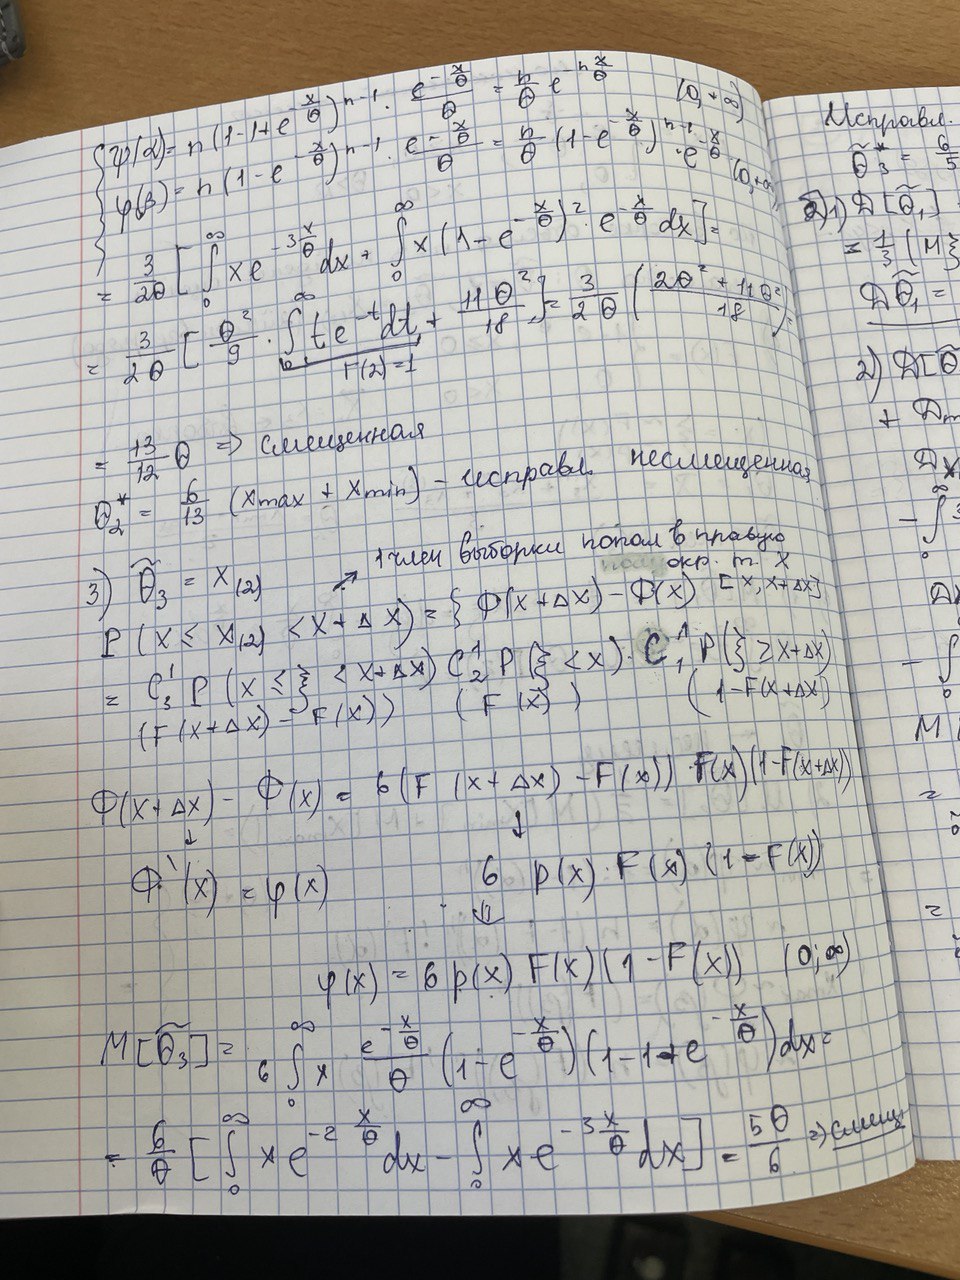 φ(α) = n (1-1+e^{-x/θ})^{n-1} · e^{-x/θ}/θ = n/θ e^{-n x/θ} (0, +∞)
φ(β) = n (1 - e^{-x/θ})^{n-1} · e^{-x/θ}/θ = n/θ (1-e^{-x/θ})^{n-1} · e^{-x/θ} (0, +∞)
= 3/2θ [∫_0^∞ x e^{-3x/θ} dx + ∫_0^∞ x (1-e^{-x/θ})^2 · e^{-x/θ} dx] =
= 3/2θ [θ^2/9 · ∫_0^∞ t e^{-t} dt + 11θ^2/18] = 3/2θ (2θ^2 + 11θ^2 / 18) =
Γ(2) = 1
= 13/12 θ => смещенная
θ_2^* = 6/13 (x_max + x_min) - исправл. несмещенная
1 член выборки попал в правую
окр. т. x
3) θ̃_3 = x_(2) [x, x+Δx]
P (x ≤ x_(2) < x+Δx) = { Φ(x+Δx) - Φ(x)
= C_3^1 P (x ≤ ξ < x+Δx) C_2^1 P(ξ < x) · C_1^1 P(ξ ≥ x+Δx)
(F(x+Δx) - F(x)) (F(x)) (1-F(x+Δx))
Φ(x+Δx) - Φ(x) = 6 (F(x+Δx) - F(x)) · F(x) (1-F(x+Δx))
↓ ↓
Φ'(x) = φ(x) 6 p(x) · F(x) · (1-F(x))
⇓
φ(x) = 6 p(x) F(x) (1-F(x)) (0; ∞)
M[θ̃_3] = 6 ∫_0^∞ x e^{-x/θ}/θ (1-e^{-x/θ}) (1-1+e^{-x/θ}) dx =
= 6/θ [∫_0^∞ x e^{-2x/θ} dx - ∫_0^∞ x · e^{-3x/θ} dx] = 5θ/6 => смещ.
Исправл.
θ̃_3^* = 6/5
2) 1) D[θ̃_1]
= 1/3 (M ξ
Dθ̃_1 =
2) D[θ̃
+ D
D x
- ∫_0^∞ 3
D
- ∫_0
M
=
=